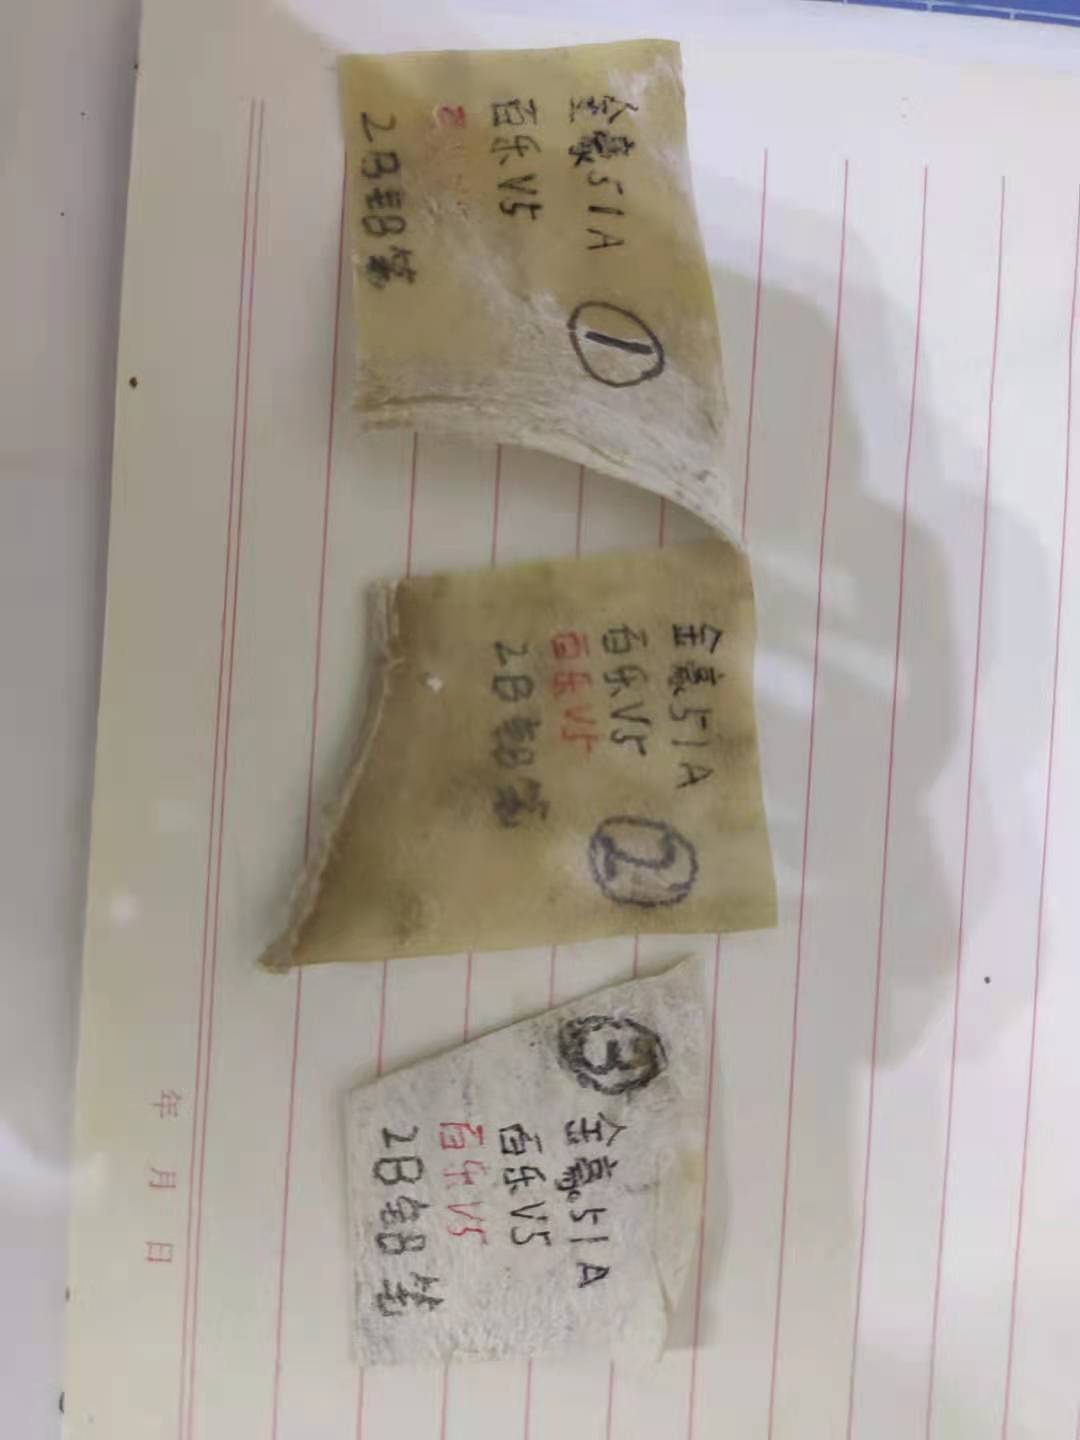 ①
金豪51A
百乐V5
百乐V5
2B铅笔
②
金豪51A
百乐V5
百乐V5
2B铅笔
③
金豪51A
百乐V5
百乐V5
2B铅笔
年 月 日